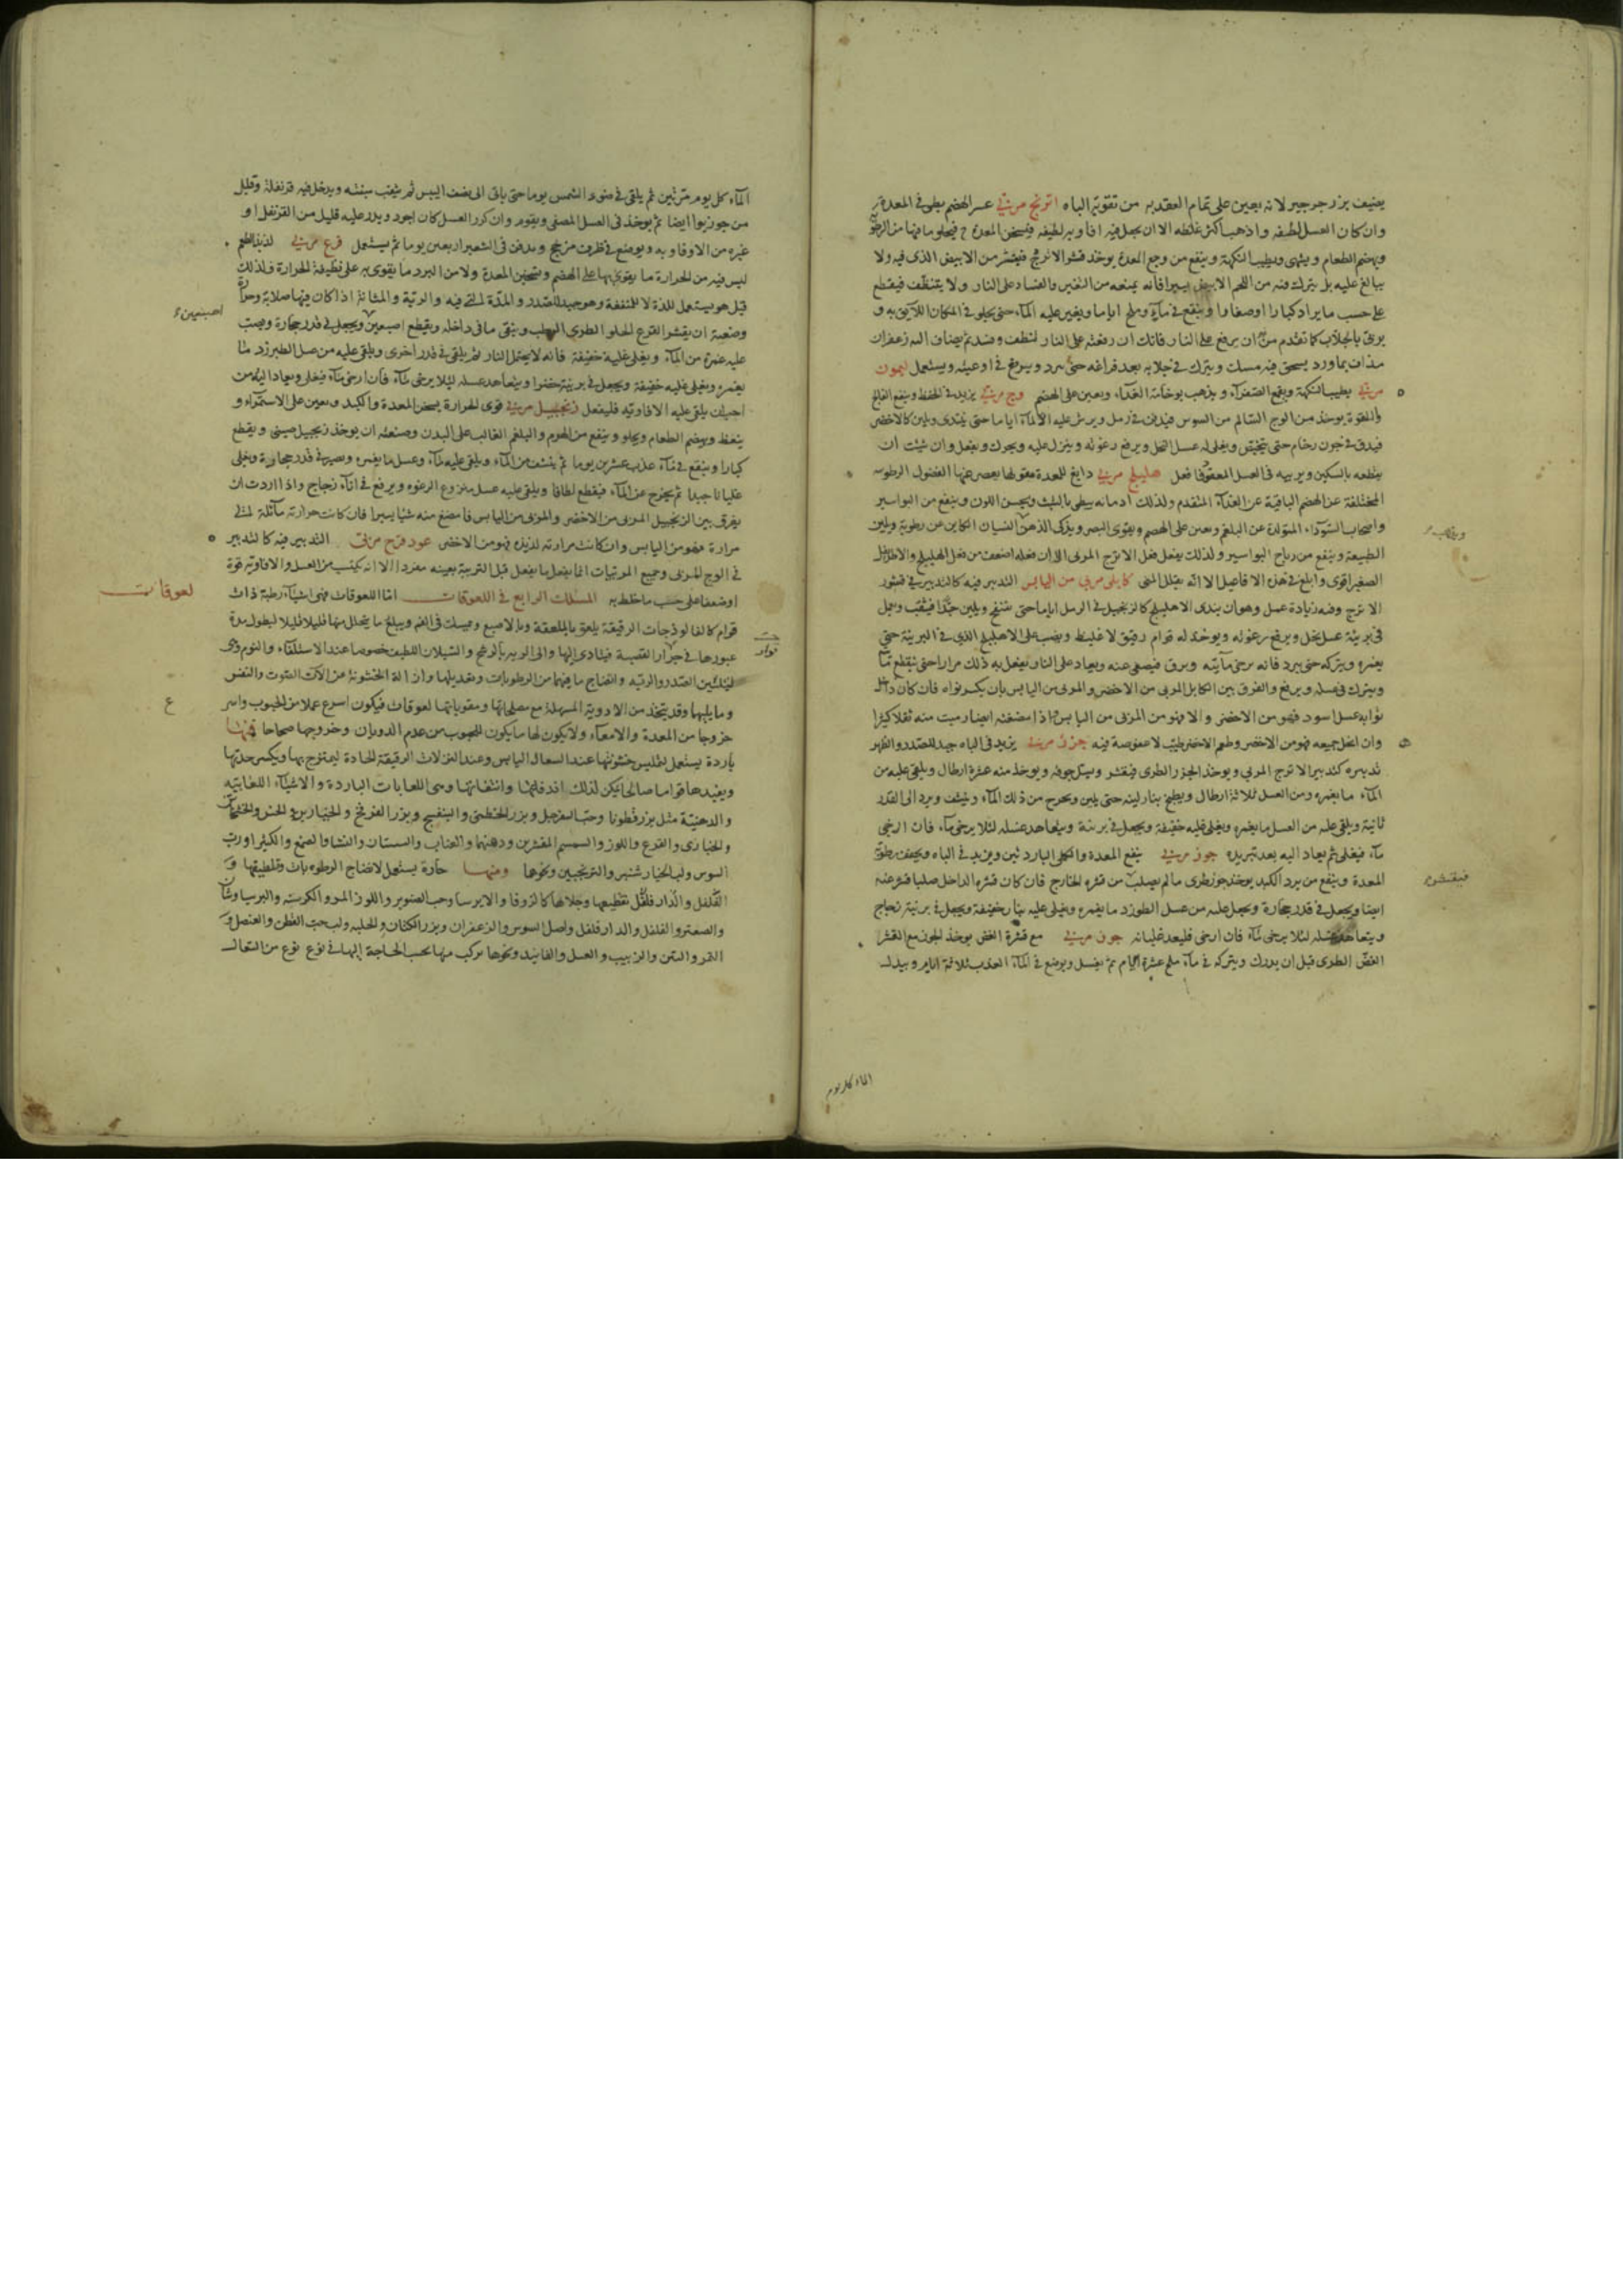 يضيف بزر جرجير لانه يعين على تمام العقد به من تقويه الباه اترنج مربى عسر الهضم يطو فى المعدة
وان كان العسل لطيفه واذهب اكثر غلظه الا ان يجعل فيه افاويه لطيفه فيسخن المعدة فيحلو ما فيها من
ويهضم الطعام ويشهى ويطيب النكهة وينفع من وجع المعدة يوخذ قشر الاترج فيقشر من الابيض الذى فيه ولا
يبالغ عليه بل يترك فيه من اللحم الابيض يسيرا فانه يمنعه من التغير والفساد على النار ولا يتنظف فيقطع
على حسب ما يراد كبارا او صغارا وينقع فى ماء وملح اياما ويغير عليه الماء حتى يحلو
يربى بالجلاب كما تقدم من ان يرفع على النار فانك ان رفعته على النار لتطف وفسد ثم يضاف اليه زعفران
مذاف بماورد يسحق فيه مسك ويترك فى جلابه بعد فراغه حتى يبرد ويرفع فى اوعيته ويستعمل ليمون
مربى يطيب النكهة ويقمع الصفراء ويذهب بوخامة الغذاء ويعين على الهضم وج مربى يزيد فى الحفظ وينفع الفالج
واللقوة يوخذ من الوج السالم من السوس فيدفن فى رمل ويرش عليه الماء اياما حتى يتندى ويلين كالاخضر
فيدق فى جون رخام حتى ويغلى له عسل النحل ويرفع رغوته وينزل عليه ويحرك ويفعل وان شئت ان
يقطعه بالسكين ويربيه فى العسل المعقود فافعل هليلج مربى دابغ للمعدة مقو لها يعصر عنها الفضول الرطوبيه
المختلفة عن الهضم الباقية عن الغذاء المتقدم ولذلك ادمانه يبطى بالشيب ويحسن اللون وينفع من البواسير
واصحاب السوداء المتولدة عن البلغم ويعين على الهضم ويقوى البصر ويذكى الذهن النسيان الكاين عن رطوبة ويلين
الطبيعة وينفع من رياح البواسير ولذلك يفعل فعل الاترج المربى الا ان فعله اضعف من فعل الهليلج والاطريفل
الصغير اقوى وابلغ فى هذه الافاعيل الا انه يقلل المنى كابلى مربى من اليابس التدبير فيه كالتدبير فى قشور
الاترج وفيه زيادة عمل وهو ان يندى الاهليلج كالزنجبيل فى الرمل اياما حتى ينتفخ ويلين جيدا فيثقب ويعمل
فى برنية عسل نحل ويرفع رغوته ويوخذ له قوام رقيق لا غليظ ويصب على الاهليلج الذى فى البرنية حتى
يغمره ويتركه حتى يبرد فانه يرخى مائيته ويرق فيصفى عنه ويعاد على النار يفعل به ذلك مرارا حتى ينقطع
ويترك فى عسله ويرفع والفرق بين الكابلى المربى من الاخضر والمربى من اليابس بان يكسر نواه فان كان داخل
نواته عسل اسود فهو من الاخضر والا فهو من المربى من اليابس واذا مضغته ايضا رميت منه ثفلا كثيرا
وان انحل جميعه فهو من الاخضر وطعم الاخضر طيب لا عفوصة فيه جزر مربى يزيد فى الباه جيد للصدر والظهر
تدبيره كتدبير الاترج المربى ويوخذ الجزر الطرى فيقشر ويسل جوفه ويوخذ منه عشرة ارطال ويلقى عليه من
الماء ما يغمره ومن العسل ثلاثة ارطال ويطبخ بنار لينه حتى يلين ويخرج من ذلك الماء وينشف ويرد الى القدر
ثانية ويلقى عليه من العسل ما يغمره ويغلى عليه خفيفة ويجعل فى برنية ويتعاهد عسله لئلا يرخى ماء فان ارخى
ماء فيغلى ثم يعاد اليه بعد تبريده جوز مربى ينفع المعدة والكلى الباردتين ويزيد فى الباه ويجفف رطوبة
المعدة وينفع من برد الكبد يوخذ جوز طرى ما لم يصلب من قشره الخارج فان كان قشره الداخل صلبا قشر عنه
ايضا ويجعل فى قدر حجارة ويجعل عليه من عسل الطبرزد ما يغمره ويغلى عليه بنار خفيفة ويجعل فى برنية زجاج
ويتعاهد عسله لئلا يرخى ماء فان ارخى فليعد غليانه جوز مربى مع قشرة الغض يوخذ الجوز مع القشر
الغض الطرى قبل ان يدرك ويتركه فى ماء ملح عشرة ايام ثم يغسل ويوضع فى الماء العذب ثلاثة ايام ويبدل
فيقشر
الماء كل يوم
الماء كل يوم مرتين ثم يلقى فى ضوء الشمس يوما حتى ياتى الى نصف اليبس ثم يثقب بثقبه ويدخل فيه قرنفلة وقليل
من جوزبوا ايضا ثم يوخذ فى العسل المصفى ويقوم وان كرر العسل كان اجود ويدر عليه قليل من القرنفل او
غيره من الافاويه ويوضع فى ظرف مزجج ويدفن فى الشعير اربعين يوما ثم يستعمل قرع مربى لذيذ الطعم
ليس فيه من الحرارة ما يقوى بها على الهضم وتسخين المعدة ولا من البرد ما يقوى به على تطفية الحرارة فلذلك
قيل هو يستعمل للذة لا للمنفعة وهو جيد للصدر والمدة التى فيه والرئة والمثانة اذا كان فيها صلابة
وصنعته ان يقشر القرع الحلو الطرى وينقى ما فى داخله ويقطع اصبعين ويجعل فى قدر حجارة ويصب
عليه غمره من الماء ويغلى غلية خفيفة فانه لا يحتمل النار ثم يلقى فى قدر اخرى ويلقى عليه من عسل الطبرزد ما
يغمره ويغلى غليه خفيفة ويجعل فى برنية خضرا ويتعاهد عسله لئلا يرخى ماء فان ارخى ماء فيغلى ويعاد اليه من
احب ان يلقى عليه الافاويه فليفعل زنجبيل مربى قوى الحرارة يسخن المعدة والكبد ويعين على الاستمراء و
ينعظ ويهضم الطعام ويحلو وينفع من الهرم والبلغم الغالب على البدن وصنعته ان يوخذ زنجبيل صينى ويقطع
كبارا وينقع فى ماء عذب عشرين يوما ثم ينشف من الماء ويلقى عليه ماء وعسل ما يغمره ويصير فى قدر حجارة ويغلى
غليانا جيدا ثم يخرج عن الماء فيقطع لطافا ويلقى عليه عسل منزوع الرغوه ويرفع فى اناء زجاج واذا اردت ان
يفرق بين الزنجبيل المربى من الاخضر والمربى من اليابس فامضغ منه شيا يسيرا فان كانت حرارته مائلة الى
مرارة فهو من اليابس وان كانت مرارته لذيذه فهو من الاخضر عود قرح مربى التدبير فيه كالتدبير
فى الوج المربى وجميع المربيات انما يفعل ما يفعل قبل التربية بعينه مفردا الا انه يكتسب من العسل والافاويه قوة
او ضعفا على حسب ما خلط به المسلك الرابع فى اللعوقات اما اللعوقات فهى اشياء رطبة ذات
لعوقات
قوام كالفالوذجات الرقيقة يلعق بالملعقة وبالاصبع ويمسك فى الفم ويبلع ما يتحلل منها قليلا قليلا ليطول مدة
عبورها فى جوار القصبة فيتادى اليها والى الريه بالرشح والسيلان اللطيف خصوصا عند الاستلقاء والنوم وهى
لتليين الصدر والرئه وانضاج ما فيهما من الرطوبات وتعديلها وازالة الخشونة عن الات الصوت والنفس
وما يليها وقد يتخذ من الادوية المسهلة مع مصلحاتها ومقوياتها لعوقات فيكون اسرع عملا من الحبوب واسر
خروجا من المعدة والامعاء ولا يكون لها ما يكون للحبوب من عدم الذوبان وخروجها صحاحا فمنها
باردة يستعمل لتمليس خشونتها عند السعال اليابس وعند النزلات الرقيقة الحادة ليمتزج بها ويكسر حدتها
ويفيدها قواما صالحا وهى اللعابات الباردة والاشياء اللعابيه
والدهنية مثل بزر قطونا وحب السفرجل وبزر الخطمى والبنفسج وبزر الفرفخ والخيارين والخس والخشخاش
والخبازى والقرع واللوز والسمسم المقشرين ودهنهما والعناب والسبستان والنشا والصمغ والكثيرا ورب
السوس ولب الخيار شنبر والترنجبين ونحوها ومنها حارة يستعمل لانضاج الرطوبات وتلطيفها و
الفلفل والدار فلفل تقطيعها وجلائها كالزوفا والايرسا وحب الصنوبر واللوز المر والكرسنه والبرسياوشان
والصعتر والفلفل والدار فلفل واصل السوس والزعفران وبزر الكتان والحلبه ولب حب القطن والعنصل و
التمر والتين والزبيب والعسل والفانيد ونحوها يركب منها بحسب الحاجة اليها فى نوع نوع من السعال